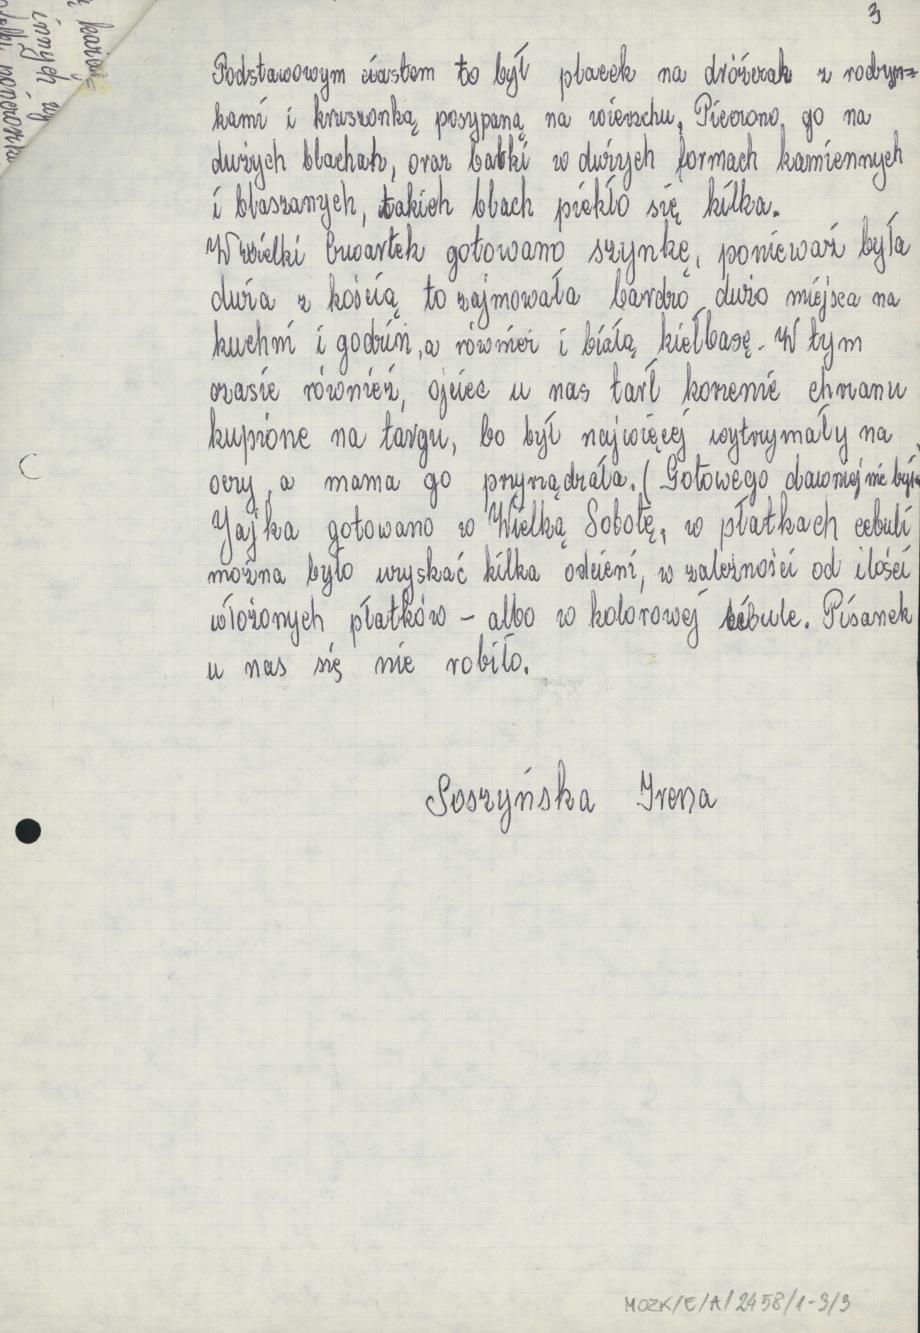 3
Podstawowym ciastem to był placek na dróżczak z rodzyn=
kami i kruszonką posypaną na wierzchu. Pieczono go na
dużych blachah, oraz babki w dużych formach kamiennych
i blaszanych, takich blach piekło się kilka.
W Wielki Czwartek gotowano szynkę, ponieważ była
duża z kością to zajmowała bardzo dużo miejsca na
kuchni i godzin, a również i białą kiełbasę. W tym
czasie również, ojciec u nas tarł korzenie chrzanu
kupione na targu, bo był najwięcej wytrzymały na
oczy, a mama go przyrządzała. (Gotowego dawniej nie było
Jajka gotowano w Wielką Sobotę, w płatkach cebuli
można było uzyskać kilka odcieni, w zależności od ilości
włożonych płatków - albo w kolorowej bibule. Pisanek
u nas się nie robiło.
Soszyńska Irena
MOZK/E/A/2458/1-3/3